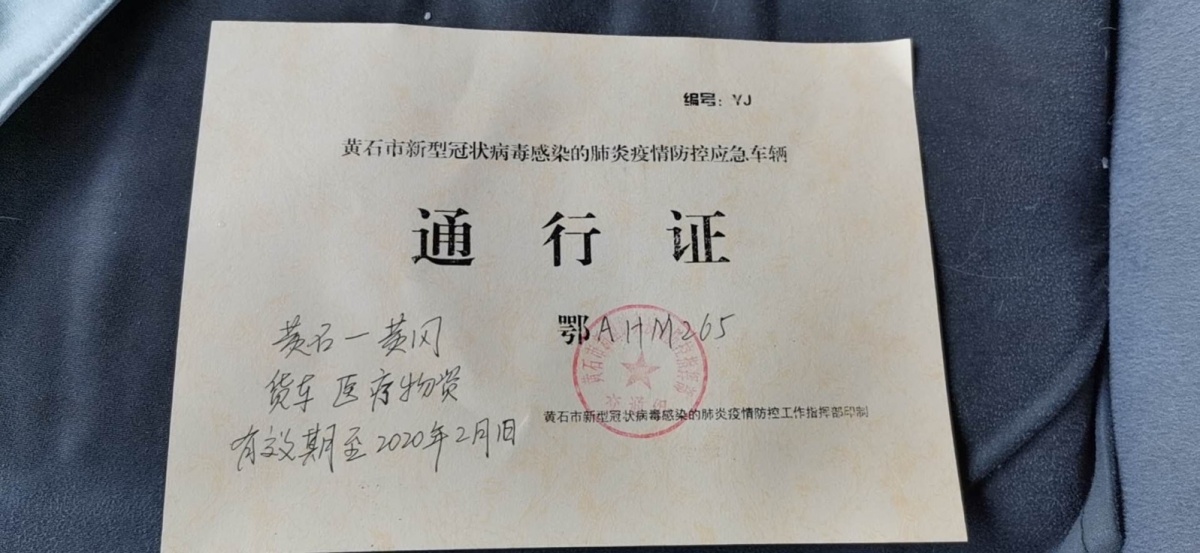 编号：YJ
黄石市新型冠状病毒感染的肺炎疫情防控应急车辆
通行证
鄂AHM265
黄石一黄冈
货车 医疗物资
有效期至2020年2月1日
黄石市新型冠状病毒感染的肺炎疫情防控工作指挥部印制